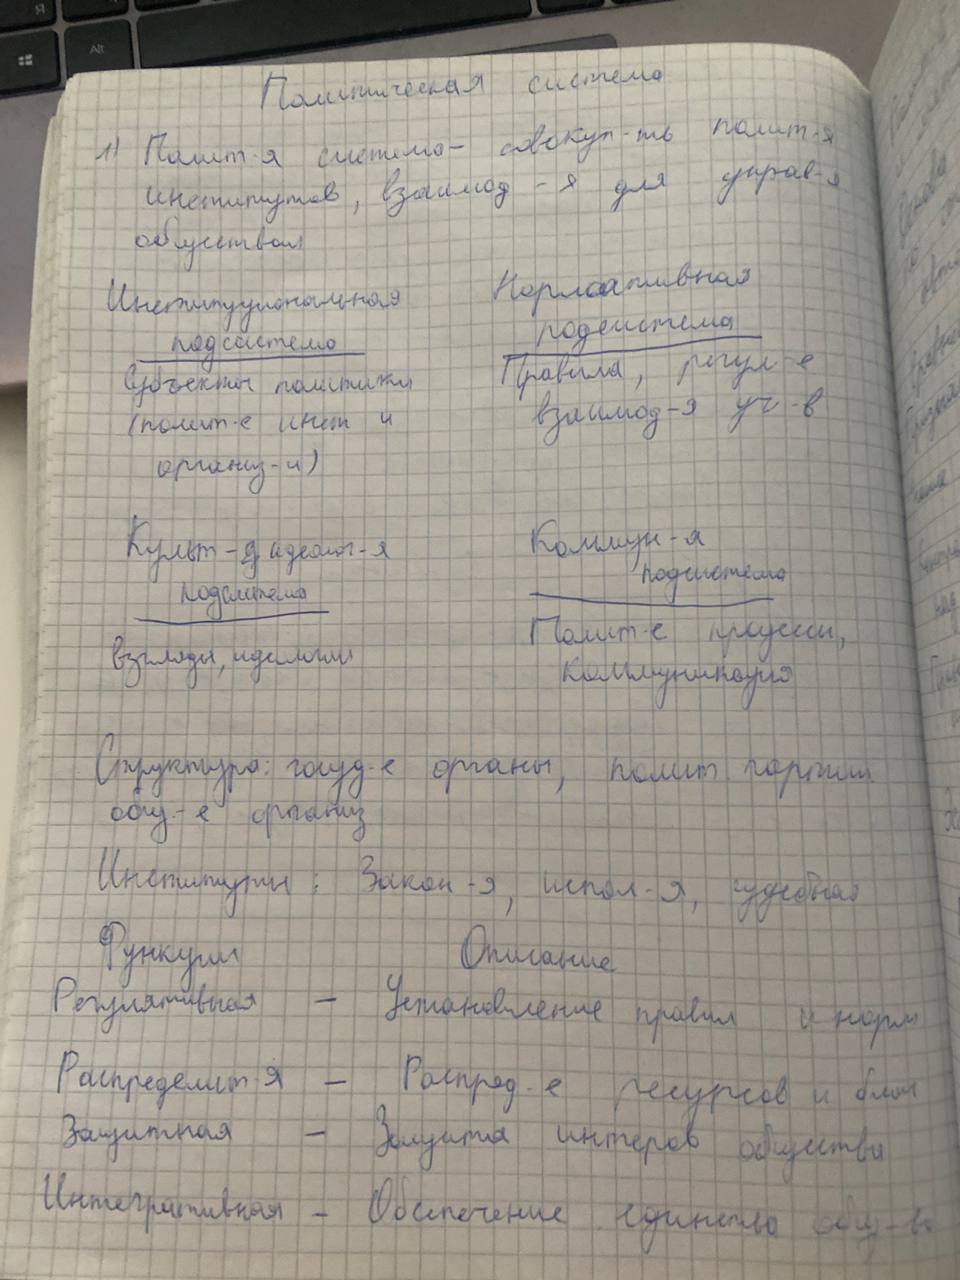 Alt
Политическая система
1) Полит-я система - совокуп-ть полит-я
институтов, взаимод-я для управ-я
обществом
Институциональная
подсистема
Субъекты политики
(полит-е инст и
организ-и)
Нормаативная
подсистема
Правила, регул-е
взаимод-я уч-в
Культ-я идеолог-я
подсистема
взгляды, идеологии
Коммун-я
подсистема
Полит-е процессы,
коммуникация
Структура: госуд-е органы, полит партии
общ-е организ
Институты: Закон-я, испол-я, судебная
Функции Описание
Регулятивная - Установление правил и норм
Распределит-я - Распред-е ресурсов и благ
Защитная - Защита интеров общества
Интегративная - Обеспечение единства общ-ва